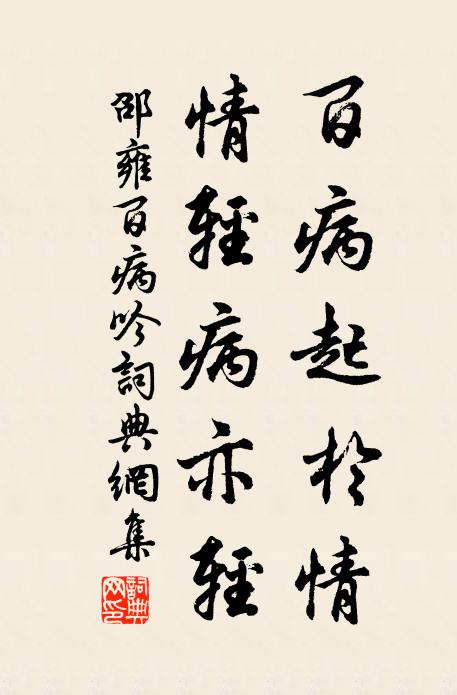 百病起於情
情輕病亦輕
邵雍百病吟詞典網集
詞典網印